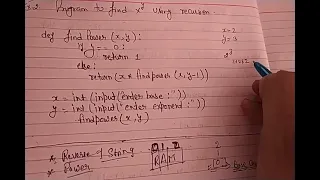 Program to find x^y using recursion
def find Power (x,y):
if y == 0:
return 1
else:
return (x * findpower (x, y-1))
x = int (input ("enter base :"))
y = int (input ("enter exponend :"))
findpower (x,y)
* Reverse of String
* Power
0 1 2
RAM
x=2
y=3
2^3